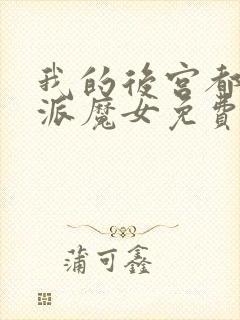 我的後宮都
派魔女免費
蒲可鑫